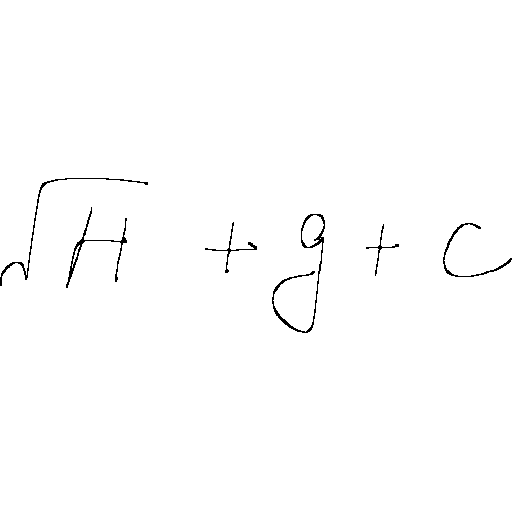 √H + g + c